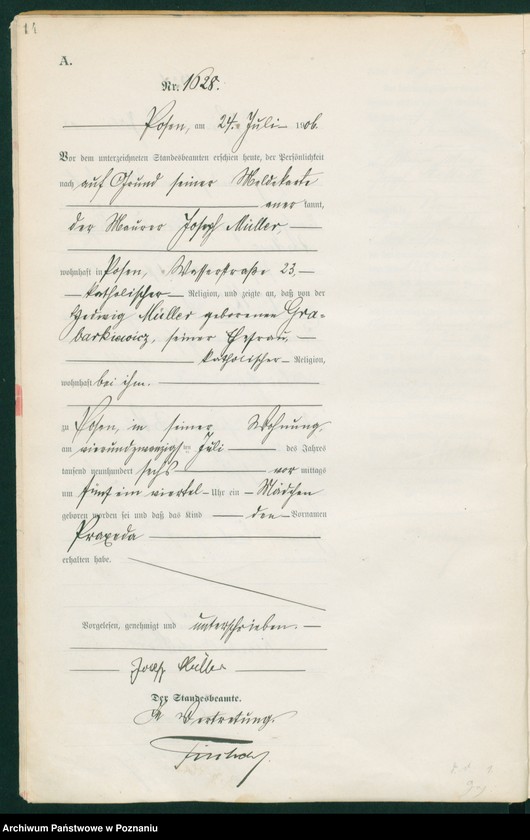 11
A.
Nr. 1628.
Posen, am 24ten Juli 1906.
Vor dem unterzeichneten Standesbeamten erschien heute, der Persönlichkeit
nach auf Grund seiner Meldekarte
aner kannt,
der Maurer Joseph Müller,
wohnhaft in Posen, Wasserstraße 23,
katholischer Religion, und zeigte an, daß von der
Hedwig Müller geborenen Gra-
barkiewicz, seiner Ehefrau,
katholischer Religion,
wohnhaft bei ihm.
zu Posen, in seiner Wohnung,
am vierundzwanzigsten Juli des Jahres
tausend neunhundert sechs vor mittags
um fünf ein viertel Uhr ein Mädchen
geboren worden sei und daß das Kind den Vornamen
Praxeda
erhalten habe.
Vorgelesen, genehmigt und unterschrieben.
Josef Müller
Der Standesbeamte.
In Vertretung.
Archiwum Państwowe w Poznaniu